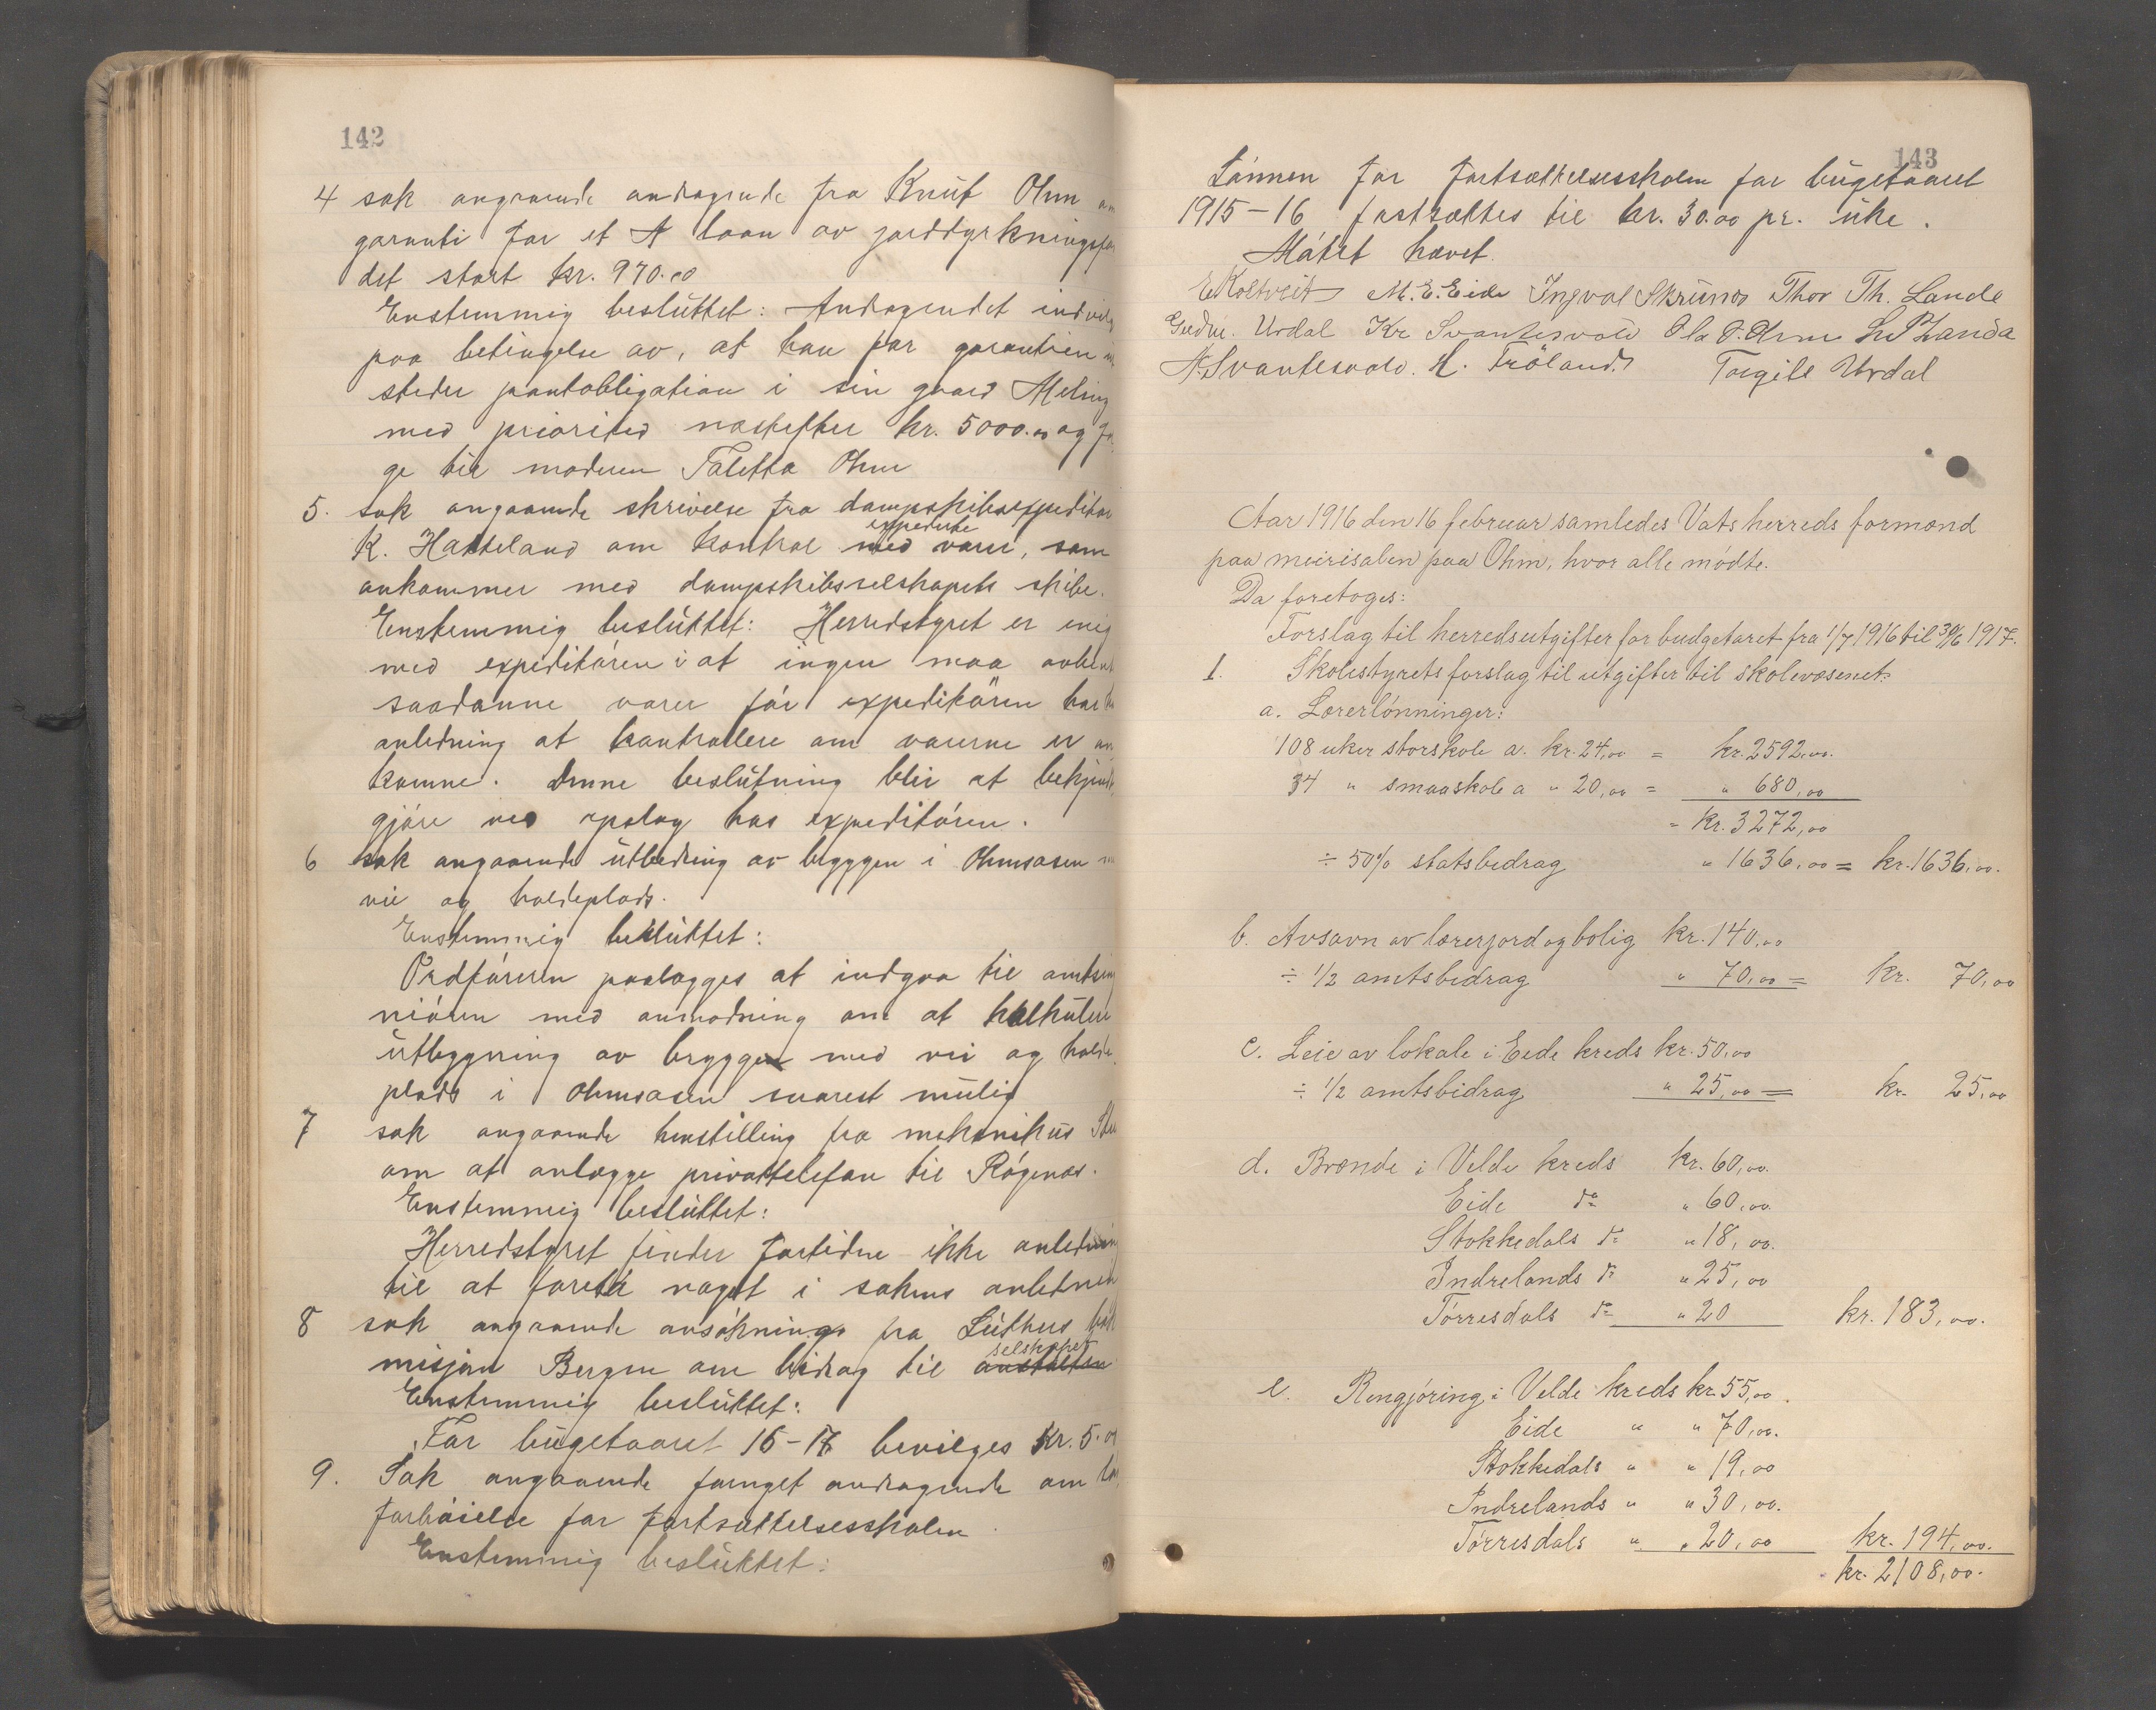 142
4 sak angaaende andragende fra Knut Ohm
garanti for et laan av jorddyrkningsfon
det stort kr. 970.00
Enstemmig besluttet: Andragendet indvilg
paa betingelse av, at han for garantien
steder pantobligation i sin gaard Meling
med priorited næstefter kr. 5000.00 og fø
ge til moderen Taletta Ohm
5. sak angaaende skrivelse fra dampskibsexpeditør
expederte
K. Hatteland om kontrol med varer, som
ankommer med dampskibsselskapets skibe.
Enstemmig besluttet: Herredstyret er enig
med expeditøren i at ingen maa avhent
saadanne varer før expeditøren har
anledning at kontrollere om varerne er an
komne. Denne beslutning blir at bekjendt
gjøre ved opslag hos expeditøren.
6 sak angaaende utbedring av bryggen i Ohmvaagen
vei og holdeplads.
Enstemmig besluttet:
Ordføreren paalægges at indgaa til amtsin
niøren med anmodning om at kalkulere
utbygning av bryggen med vei og holde
plads i Ohmvaagen snarest mulig
7 sak angaaende henstilling fra mekanikus
om at anlægge privattelefon til Røgenes.
Enstemmig besluttet:
Herredstyret finder fortiden ikke anledning
til at foreta noget i sakens anledning
8 sak angaaende ansøkning fra Luthers
selskapet
misjon Bergen om bidrag til anstalten
Enstemmig besluttet:
For bugetaaret 16-17 bevilges kr. 5.00
9. Sak angaaende fornyet andragende om
forhøielse for fortsættelsesskolen.
Enstemmig besluttet:
143
Lønnen for fortsættelsesskolen for bugetaaret
1915-16 fastsættes til kr. 30.00 pr. uke.
Møtet hævet.
E Kolstveit M. E. Eide Ingval Skrunes Thor Th. Lande
Gudm. Urdal Kr Svantesvold Ola O. Ohm L P Landa
N. Svantesvold. H. Frøland. Torgils Urdal
Aar 1916 den 16 februar samledes Vats herreds formænd
paa meirisalen paa Ohm, hvor alle mødte.
Da foretoges:
Forslag til herredsutgifter for budgetaret fra 1/7 1916 til 30/6 1917.
1. Skolestyrets forslag til utgifter til skolevæsenet:
a. Lærerlønninger:
108 uker storskole a. kr. 24,00 = kr. 2592,00.
34 " smaaskole a " 20,00 = " 680,00
= kr. 3272,00
÷ 50% statsbedrag " 1636,00 = kr. 1636,00.
b. Avsavn av lærerjord og bolig kr. 140,00
÷ 1/2 amtsbedrag " 70,00 = kr. 70,00
c. Leie av lokale i Eide kreds kr. 50,00
÷ 1/2 amtsbidrag " 25,00 = kr. 25,00
d. Brænde i Velde kreds kr. 60,00.
Eide do " 60,00.
Stokkedals do " 18,00.
Indrelands do " 25,00
Tørresdals do " 20 kr. 183,00.
e. Rengjøring i Velde kreds kr. 55,00.
Eide " " 70,00.
Stokkedals " " 19,00
Indrelands " " 30,00.
Tørresdals " " 20,00 kr. 194,00.
kr. 2108,00.